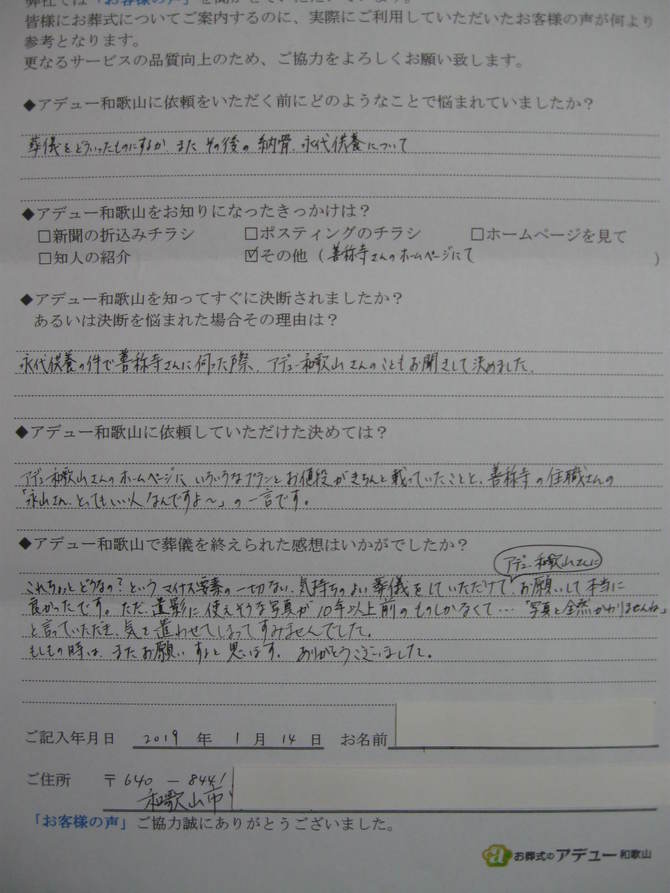 弊社では「お客様の声」を聞かせていただいています。
皆様にお葬式についてご案内するのに、実際にご利用していただいたお客様の声が何より
参考となります。
更なるサービスの品質向上のため、ご協力をよろしくお願い致します。
◆アデュー和歌山に依頼をいただく前にどのようなことで悩まれていましたか？
葬儀をどういったものにするか、また その後の 納骨、永代供養について
◆アデュー和歌山をお知りになったきっかけは？
□新聞の折込みチラシ □ポスティングのチラシ □ホームページを見て
□知人の紹介 ☑その他（善称寺さんのホームページにて ）
◆アデュー和歌山を知ってすぐに決断されましたか？
あるいは決断を悩まれた場合その理由は？
永代供養の件で善称寺さんに伺った際、アデュー和歌山さんのこともお聞きして決めました。
◆アデュー和歌山に依頼していただけた決めては？
アデュー和歌山さんのホームページに いろいろなプランとお値段がきちんと載っていたことと、善称寺の住職さんの
「永山さん、とってもいい人なんですよ～」の一言です。
◆アデュー和歌山で葬儀を終えられた感想はいかがでしたか？
アデュー和歌山さんに
これちょっとどうなの？というマイナス要素の一切ない、気持ちのよい葬儀をしていただけて、お願いして本当に
良かったです。ただ、遺影に使えそうな写真が10年以上前のものしかなくて…「写真と全然かわりませんね」
と言っていただき、気を遣わせてしまってすみませんでした。
もしもの時は、またお願いすると思います。ありがとうございました。
ご記入年月日 2019 年 1 月 14 日 お名前
ご住所 〒640 －8441
和歌山市
「お客様の声」ご協力誠にありがとうございました。
お葬式のアデュー和歌山